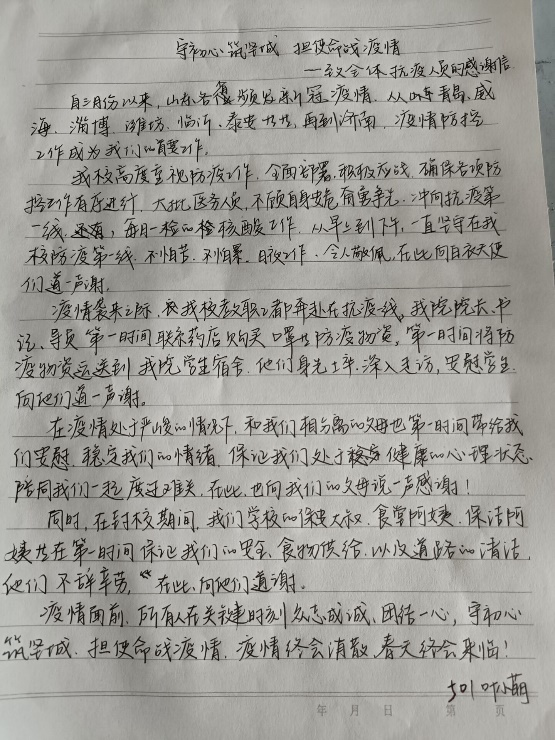 守初心筑坚城 担使命战疫情
——致全体抗疫人员的感谢信
自三月份以来，山东各地频发新冠疫情，从山东青岛、威
海、淄博、潍坊、临沂、泰安等等，再到济南，疫情防控
工作成为我们的首要工作。
我校高度重视防疫工作，全面部署，积极应战，确保各项防
控工作有序进行，大批医务人员，不顾自身安危，奋勇争先，冲向抗疫第
一线，每日一检的检核酸工作，从早上到下午，一直坚守在我
校防疫第一线，不怕苦，不怕累，日夜工作，令人敬佩，在此向白衣天使
们道一声谢。
疫情袭来之际，我校教职工都奔赴在抗疫一线，我院院长、书
记、导员第一时间联系药店购买口罩等防疫物资，第一时间将防
疫物资运送到我院学生宿舍，他们身先士卒，深入走访，安慰学生，
向他们道一声谢。
在疫情处于严峻的情况下，和我们相分离的父母也第一时间带给我
们安慰，稳定我们的情绪，保证我们处于健康的心理状态，
陪同我们一起度过难关，在此，也向我们的父母说一声感谢！
同时，在封校期间，我们学校的保安大叔、食堂阿姨、保洁阿
姨等在第一时间保证我们的安全、食物供给，以及道路的清洁，
他们不辞辛劳，在此，向他们道谢。
疫情面前，所有人在关键时刻众志成诚、团结一心，守初心
筑坚城，担使命战疫情，疫情终会消散，春天终会来临！
501 叶小萌
年 月 日 第 页